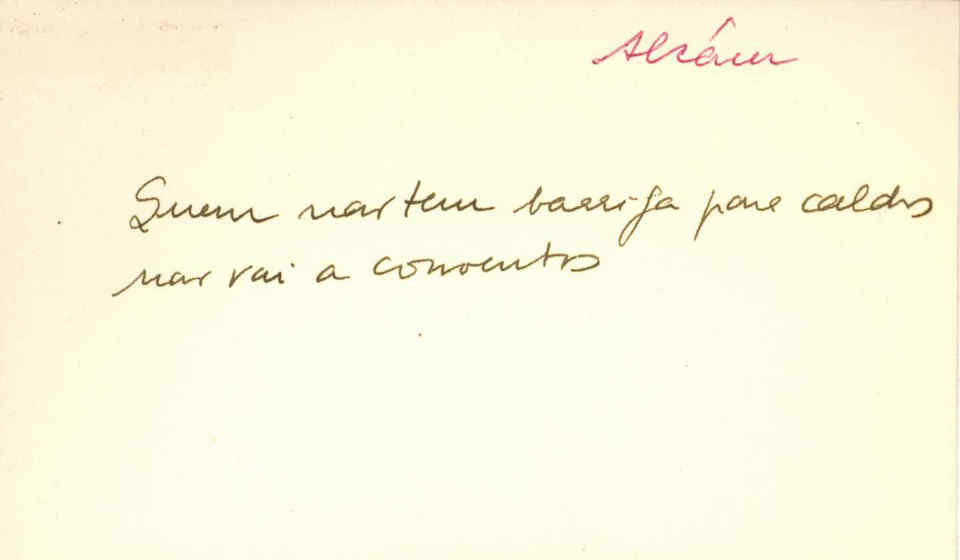 Quem nao tem barriga para caldos
nao vai a conventos